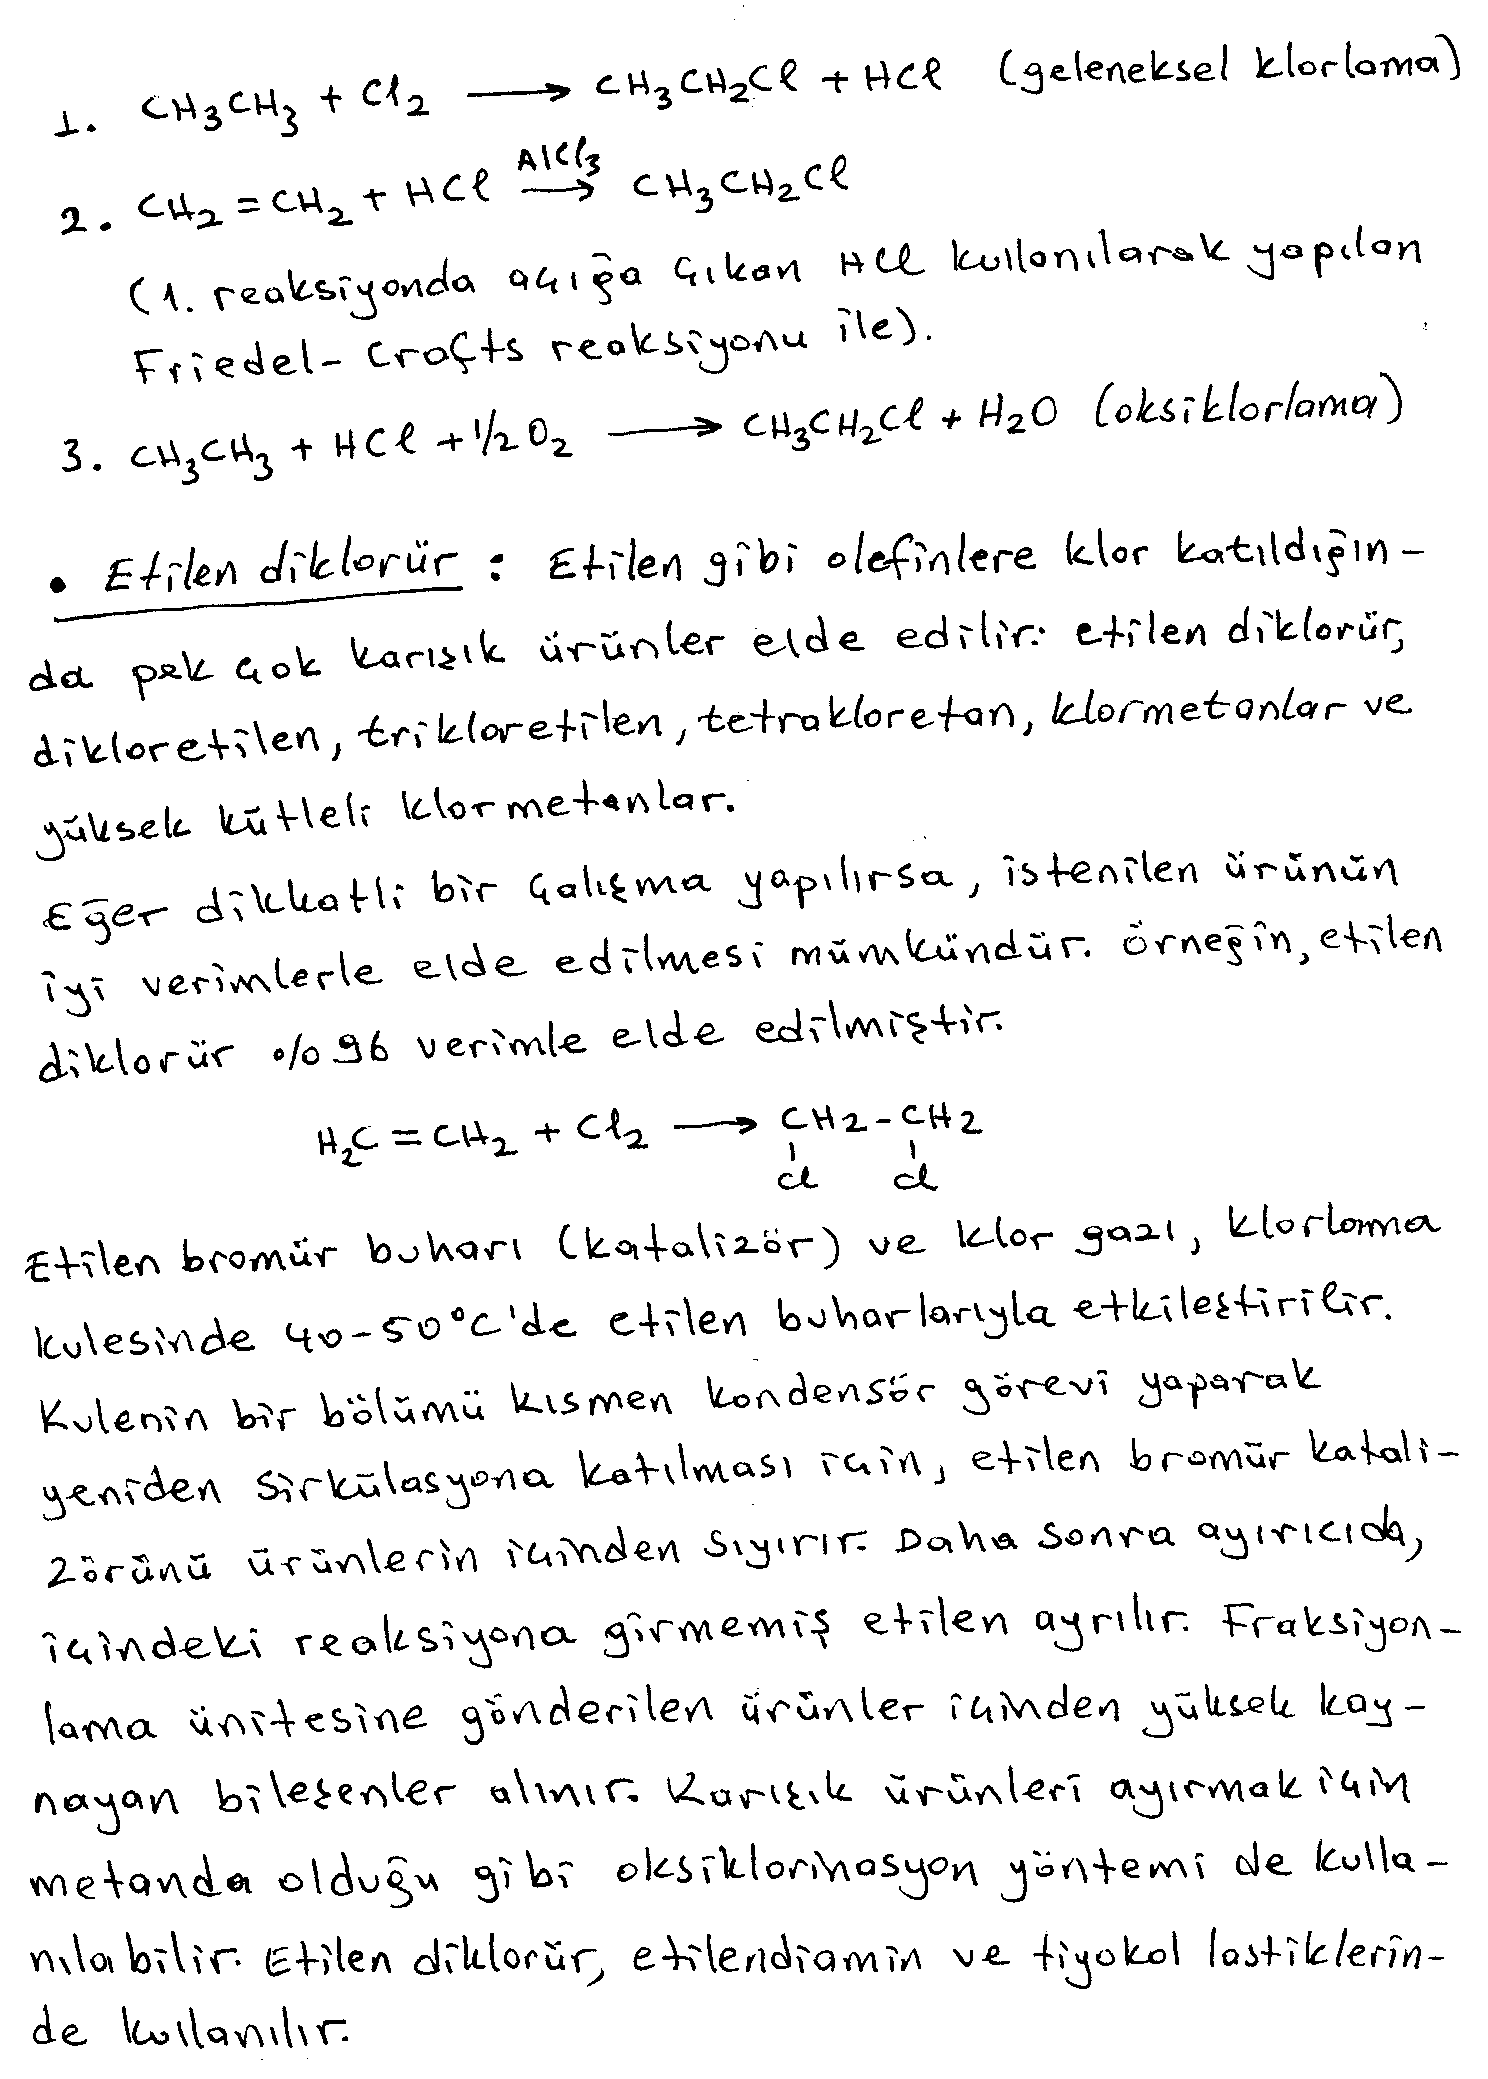 1. CH3CH3 + Cl2 ⟶ CH3CH2Cl + HCl (geleneksel klorlama)
2. CH2 = CH2 + HCl AlCl3⟶ CH3CH2Cl
(1. reaksiyonda açığa çıkan HCl kullanılarak yapılan
Friedel-Crafts reaksiyonu ile).
3. CH3CH3 + HCl + 1/2 O2 ⟶ CH3CH2Cl + H2O (oksiklorlama)
• Etilen diklorür : Etilen gibi olefinlere klor katıldığın-
da pek çok karışık ürünler elde edilir: etilen diklorür,
dikloretilen, trikloretilen, tetrakloretan, klormetanlar ve
yüksek kütleli klormetanlar.
Eğer dikkatli bir çalışma yapılırsa, istenilen ürünün
iyi verimlerle elde edilmesi mümkündür. Örneğin, etilen
diklorür %96 verimle elde edilmiştir.
H2C = CH2 + Cl2 ⟶ CH2-CH2
Cl Cl
Etilen bromür buharı (katalizör) ve klor gazı, klorlama
kulesinde 40-50°C'de etilen buharlarıyla etkileştirilir.
Kulenin bir bölümü kısmen kondensör görevi yaparak
yeniden sirkülasyona katılması için, etilen bromür katali-
zörünü ürünlerin içinden sıyırır. Daha sonra ayırıcıda,
içindeki reaksiyona girmemiş etilen ayrılır. Fraksiyon-
lama ünitesine gönderilen ürünler içinden yüksek kay-
nayan bileşenler alınır. Karışık ürünleri ayırmak için
metanda olduğu gibi oksiklorinasyon yöntemi de kulla-
nılabilir. Etilen diklorür, etilendiamin ve tiyokol lastiklerin-
de kullanılır.